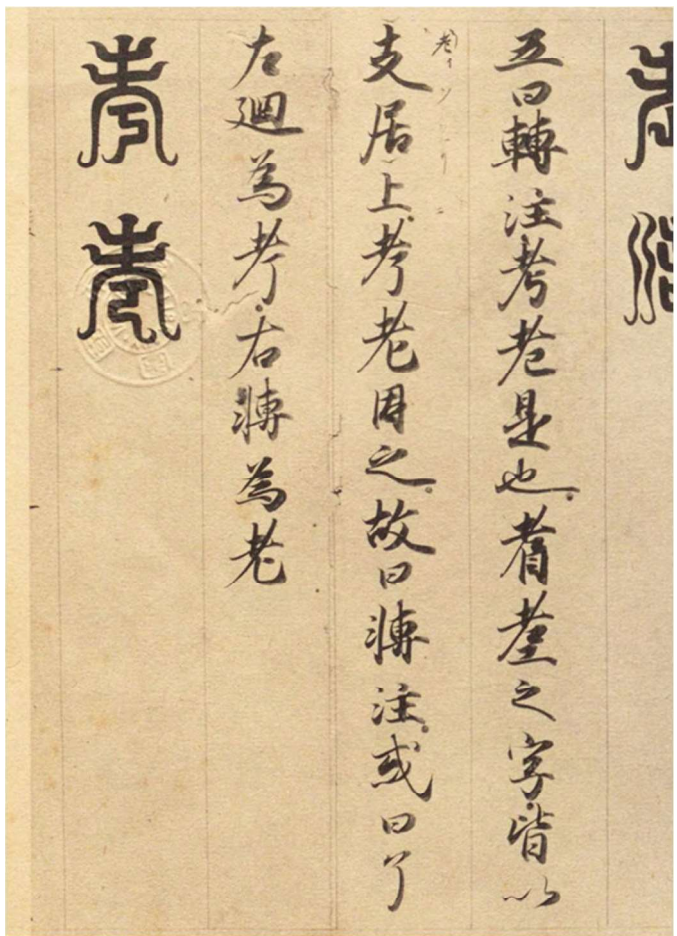 五曰轉注考老是也耆耋之字皆以
支居上考老用之故曰轉注或曰了
左廻為考右轉為老
考老